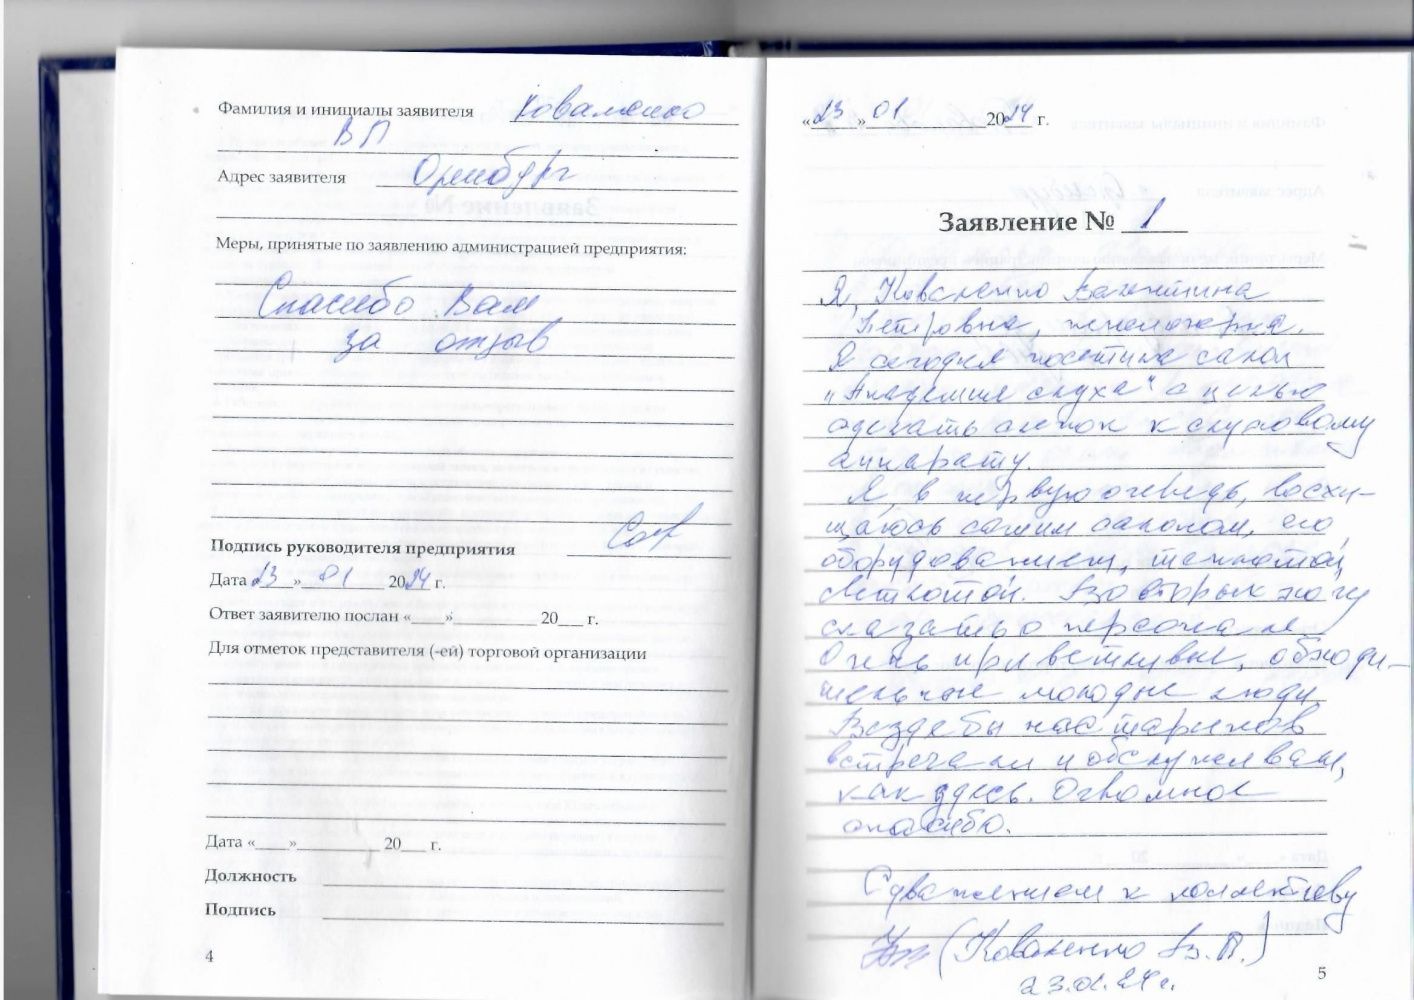 Фамилия и инициалы заявителя Коваленко
ВП
Адрес заявителя Оренбург
Меры, принятые по заявлению администрацией предприятия:
Спасибо Вам
за отзыв
Подпись руководителя предприятия
Дата «23» 01 2024 г.
Ответ заявителю послан «____»__________ 20___ г.
Для отметок представителя (-ей) торговой организации
Дата «____»__________ 20___ г.
Должность
Подпись
4
«23» 01 2024 г.
Заявление № 1
Я, Коваленко Валентина
Петровна, пенсионерка.
Я сегодня посетила салон
"Академия слуха" с целью
сделать слепок к слуховому
аппарату.
Я, в первую очередь, восхи-
щаюсь самим салоном, его
оборудованием, теплотой,
светлотой. Во вторых хочу
сказать о персонале
Очень приветливые, обходи-
тельные молодые люди
Везде бы нас стариков
встречали и обслуживали,
как здесь. Огромное
спасибо.
С уважением к коллективу
(Коваленко В.П.)
23.01.24г.
5